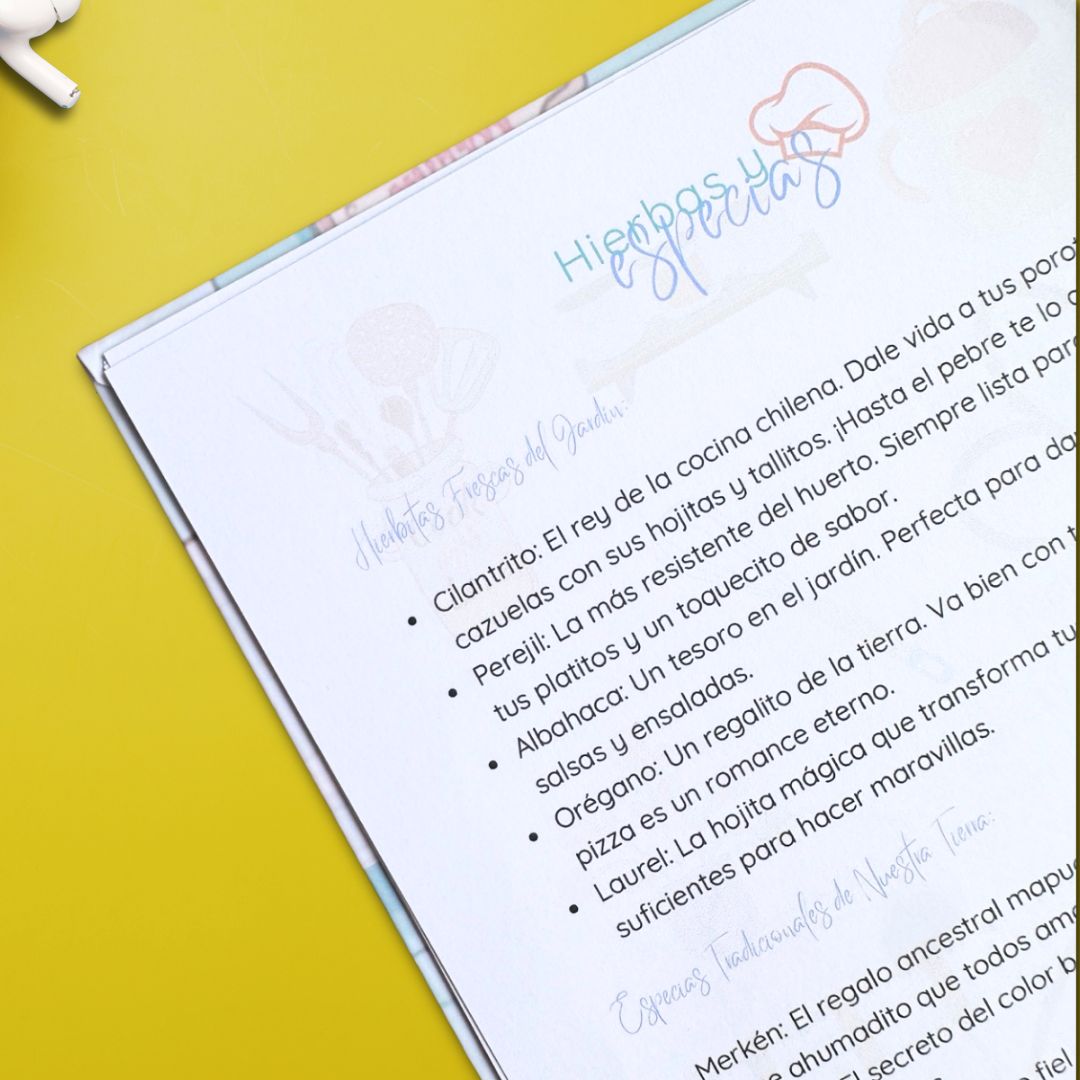 Hierbas y
especias
Hierbitas Frescas del Jardín:
Cilantrito: El rey de la cocina chilena. Dale vida a tus
cazuelas con sus hojitas y tallitos. ¡Hasta el pebre te lo
Perejil: La más resistente del huerto. Siempre lista
tus platitos y un toquecito de sabor.
Albahaca: Un tesoro en el jardín. Perfecta para
salsas y ensaladas.
Orégano: Un regalito de la tierra. Va bien con
pizza es un romance eterno.
Laurel: La hojita mágica que transforma
suficientes para hacer maravillas.
Especias Tradicionales de Nuestra Tierra:
Merkén: El regalo ancestral
ahumadito que todos
El secreto del color
fiel